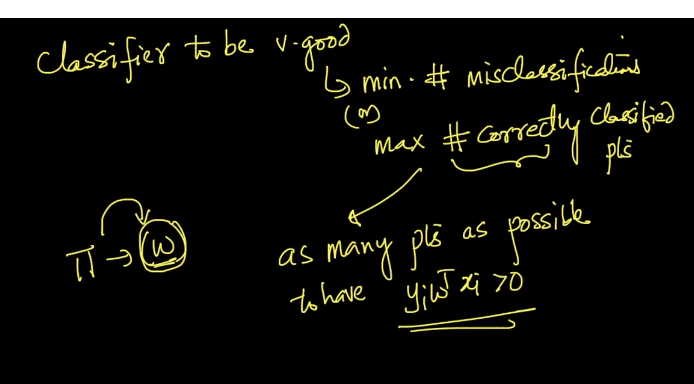 Classifier to be v.good
↳ min. # misclassifications
(or)
max # correctly classified pts
as many pts as possible
to have yᵢwᵀxᵢ >0
π → w